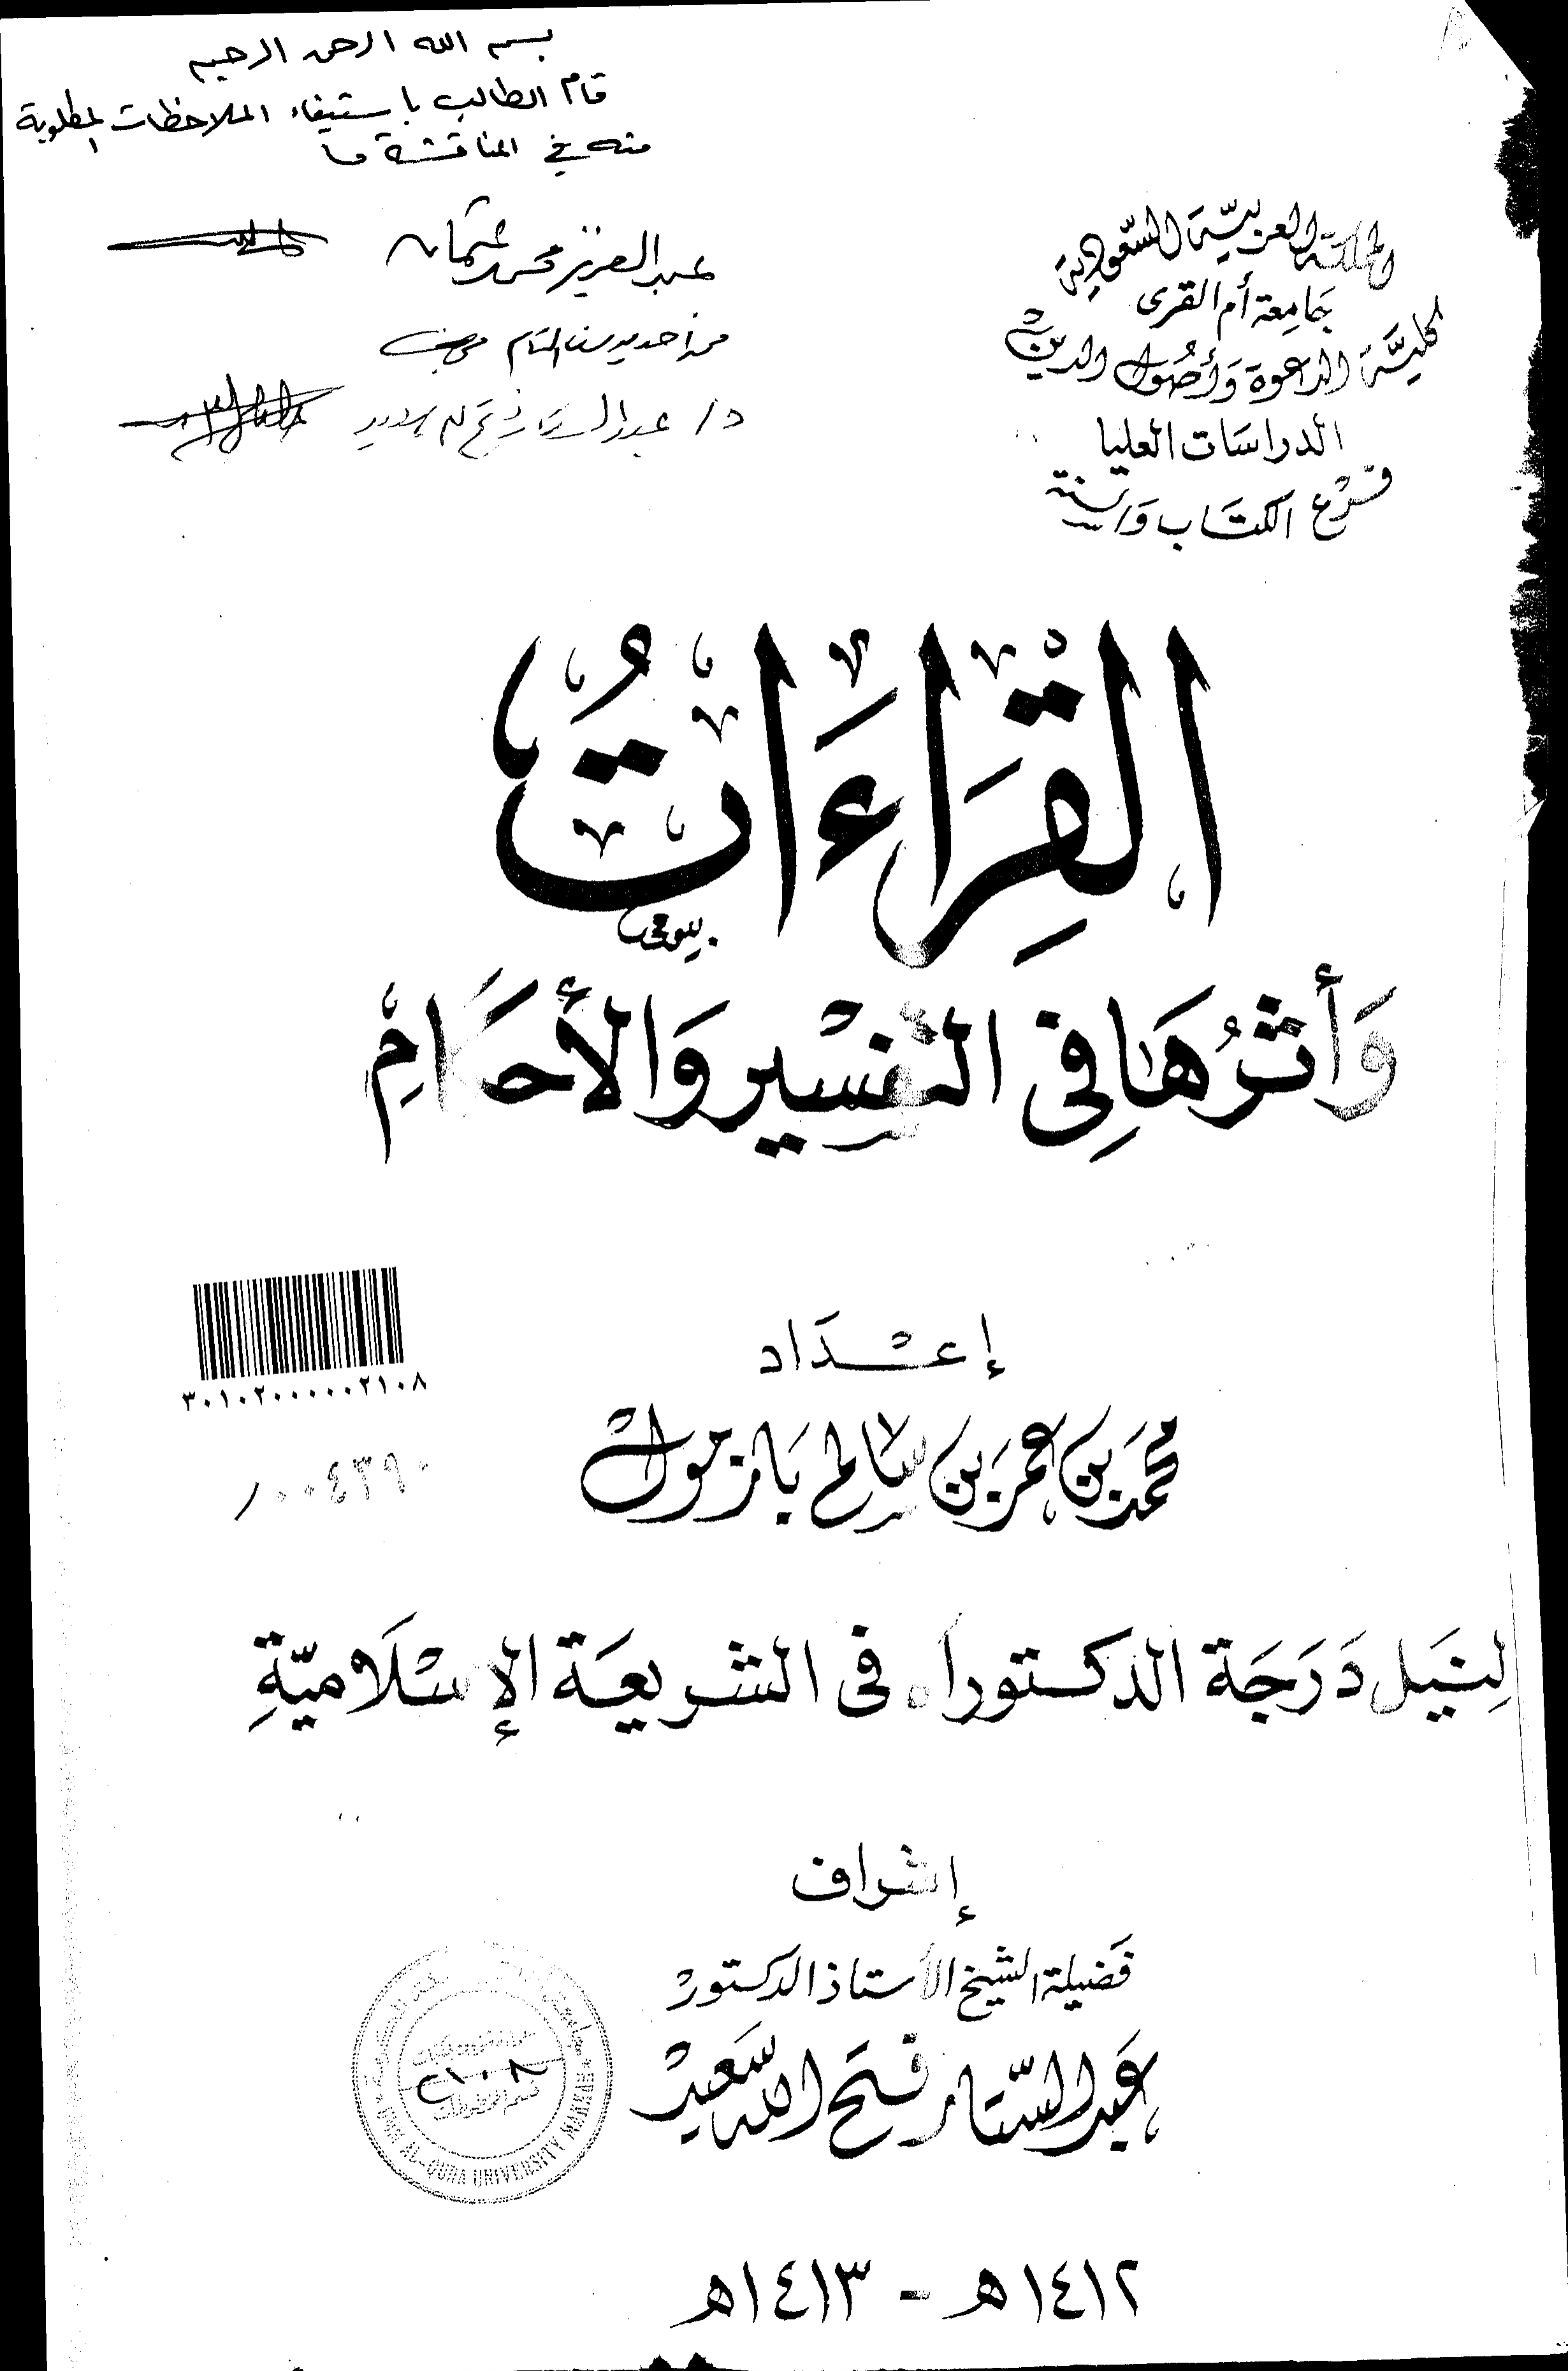 بسم الله الرحمن الرحيم
قام الطالب باستيفاء الملاحظات المطلوبة
منه في المناقشة
عبد العزيز محمد عثمان
د/ عبد الستار فتح الله سعيد
المملكة العربية السعودية
جامعة أم القرى
كلية الدعوة وأصول الدين
الدراسات العليا
فرع الكتاب والسنة
القِرَاءَاتُ
بيومى
وَأثرُهَا فِى التفسْير وَالأحكَامِ
إعْدَاد
محمّد بن عمر بن سَالم بَازمول
٣٠١٠٢٠٠٠٠٠٠٢١٠٨
١٠٠٤٣٩٠
لِنيَل دَرَجَة الدكتوراه فى الشريعَة الإسْلَاميّةِ
إشراف
فَضيلة الشيخ الأستاذ الدكتورْ
عَبد السّتار فتح الله سَعيدْ
٢١٠٨
UMM AL-QURA UNIVERSITY MAKKAH
١٤١٢هـ - ١٤١٣هـ